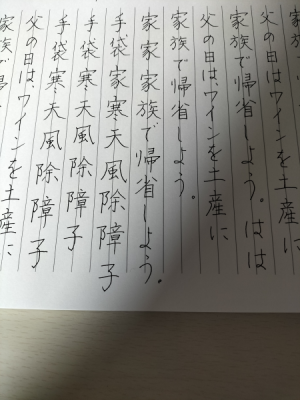 父の日は、ワインを土産に
家族で帰省しよう。はは
父の日は、ワインを土産に
家族で帰省しよう。
家家家族で帰省しよう。
手袋家寒天風除障子
手袋寒天風除障子
手袋寒天風除障子
父の日は、ワインを土産に
家族で帰